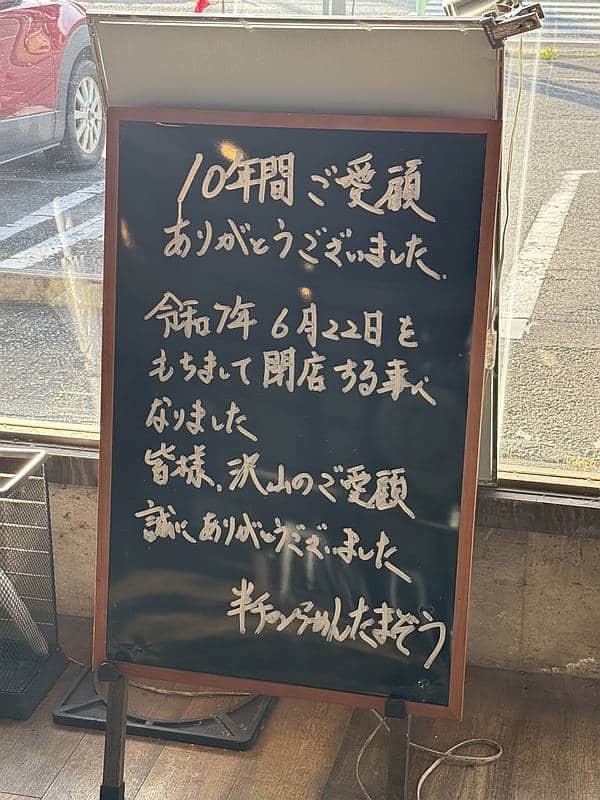 10年間ご愛顧
ありがとうございました。
令和7年 6月22日を
もちまして閉店する事に
なりました
皆様、沢山のご愛顧
誠にありがとうございました
半チャンらーめんたまぞう